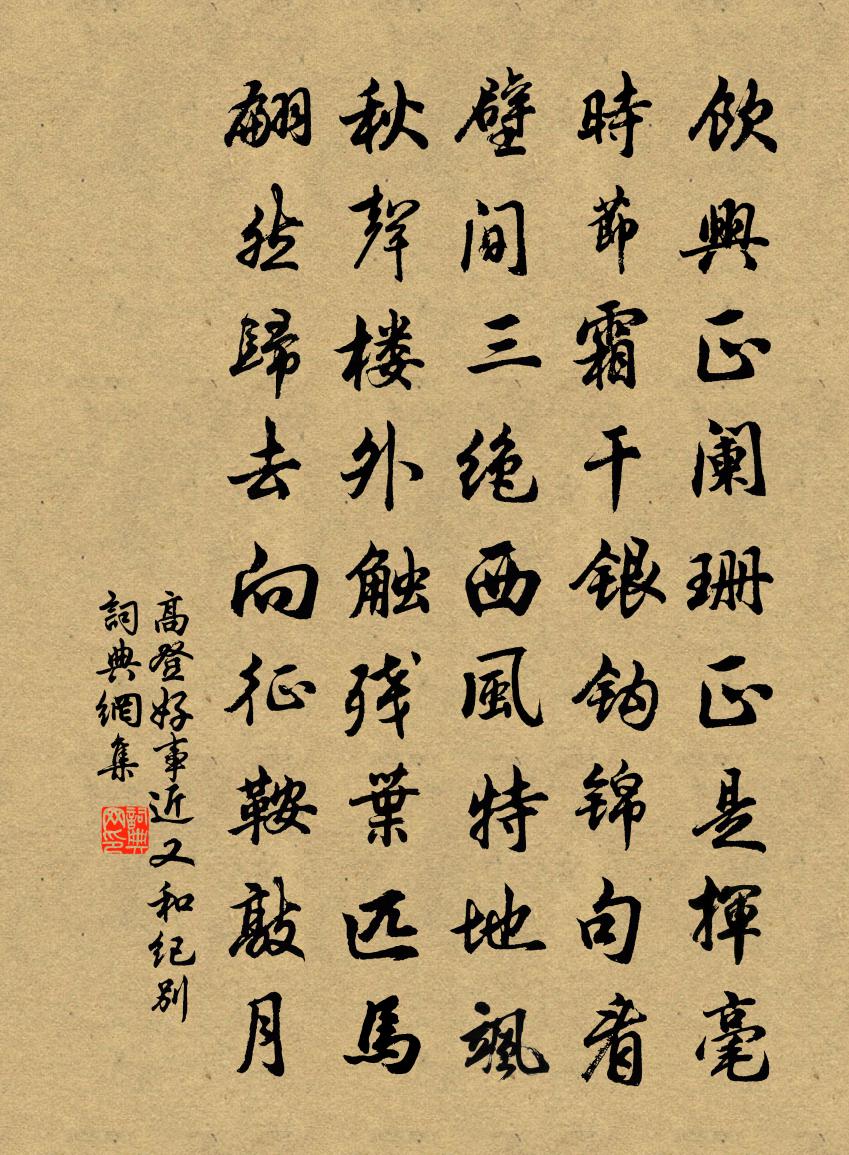 飲興正阑珊正是揮毫
時節霜干銀鈎錦句看
壁间三絶西風特地颯
秋聲楼外触残葉匹馬
翩然歸去向征鞍敲月
高登好事近又和纪别
詞典網集
詞典网印